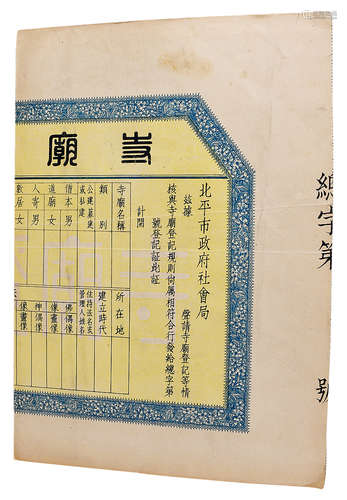 總字第　號
寺廟
北平市政府社會局
茲據　聲請寺廟登記等情
核與寺廟登記規則尚屬相符合行發給總字第
號登記証此証
計開
寺廟名稱　所在地
類別　建立時代
公建募建
或私建
住持法名或
管理人姓名
僧本男　佛偶像
道廟女　像畫像
人寄男　神偶像
數居女　像畫像